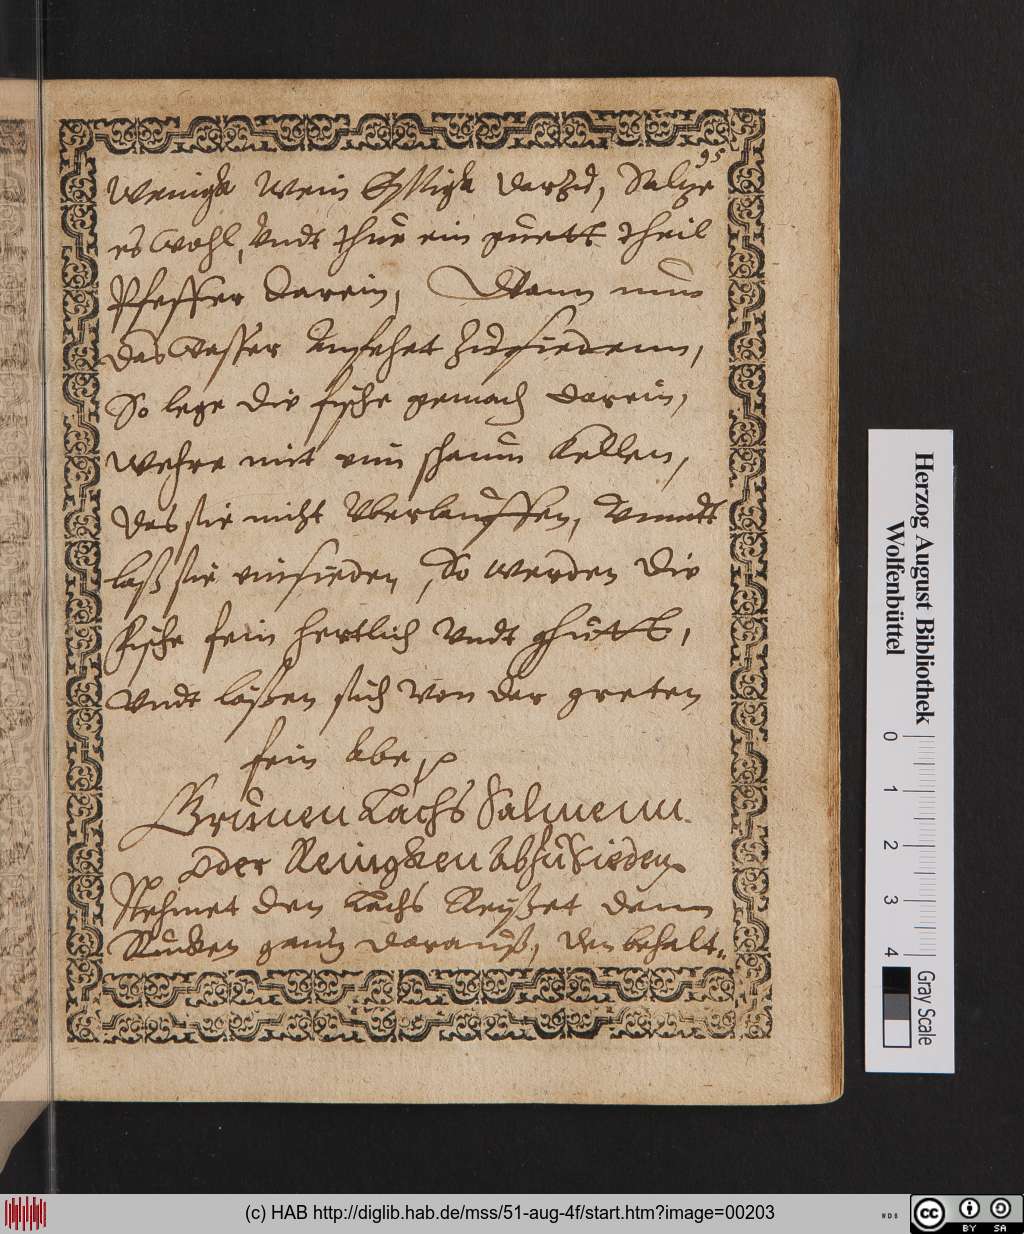 95
Wenigk Wein Essigk darzu, Saltze
es wohl, Vndt thue ein guett theil
Pfeffer darein, Wann nun
das Wasser Anfehet zu siedenn,
So lege die fische gemach darein,
Wehre mit eim schaum Kellen,
das sie nicht Vberlauffen, Vnndt
laß sie einsieden, So werden die
Fische fein hertlich Vndt ghutt,
Vndt laßen sich Von der greten
fein abe
Grunen Lachs Salmenn
oder Reinigken abzusieden
Nehmet den Lachs Reyßet denn
Rucken gantz darauß, den behalt„
Herzog August Bibliothek
Wolfenbüttel
0 1 2 3 4
Gray Scale
(c) HAB http://diglib.hab.de/mss/51-aug-4f/start.htm?image=00203
WDB
cc BY SA